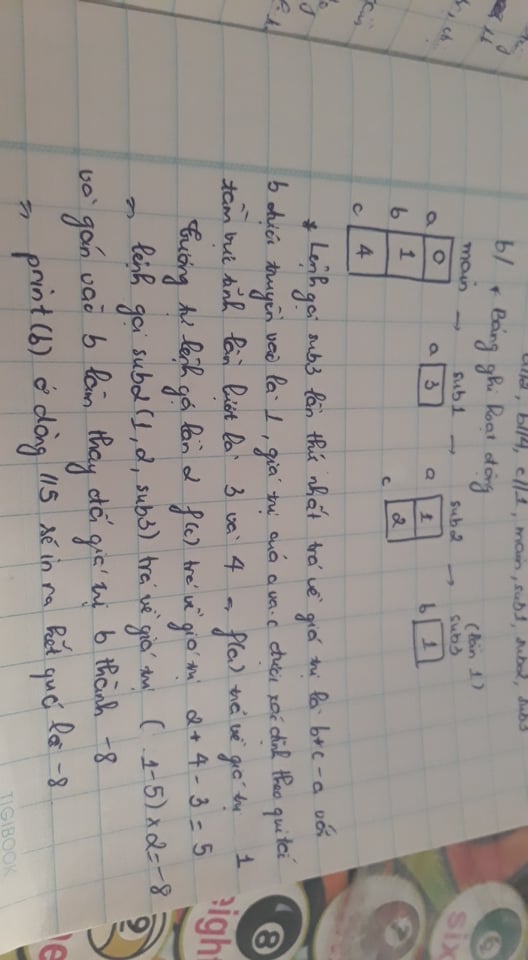 a//2, b//4, c//1, main, sub1, sub2, sub3
b/ * Bảng ghi hoạt động
(lần 1)
main → sub1 → sub2 → sub3
a 0 a 3 a 1 b 1
b 1 c 2
c 4
* Lệnh gọi sub3 lần thứ nhất trả về giá trị là b+c-a với
b được truyền vào là 1, giá trị quả a va c được xác định theo qui tắc
tầm vực tĩnh lần lượt là 3 và 4 => f(a) trả về giá trị 1
Tương tự lệnh gọi lần 2 f(c) trả về giá trị 2 + 4 - 3 = 5
=> lệnh gọi sub2 (1, 2, sub3) trả về giá trị ( 1-5) x 2 = -8
và gán vào b làm thay đổi giá trị b thành -8
=> print(b) ở dòng 115 sẽ in ra kết quả là -8
TIGIBOOK
six
7
8
eigh
9